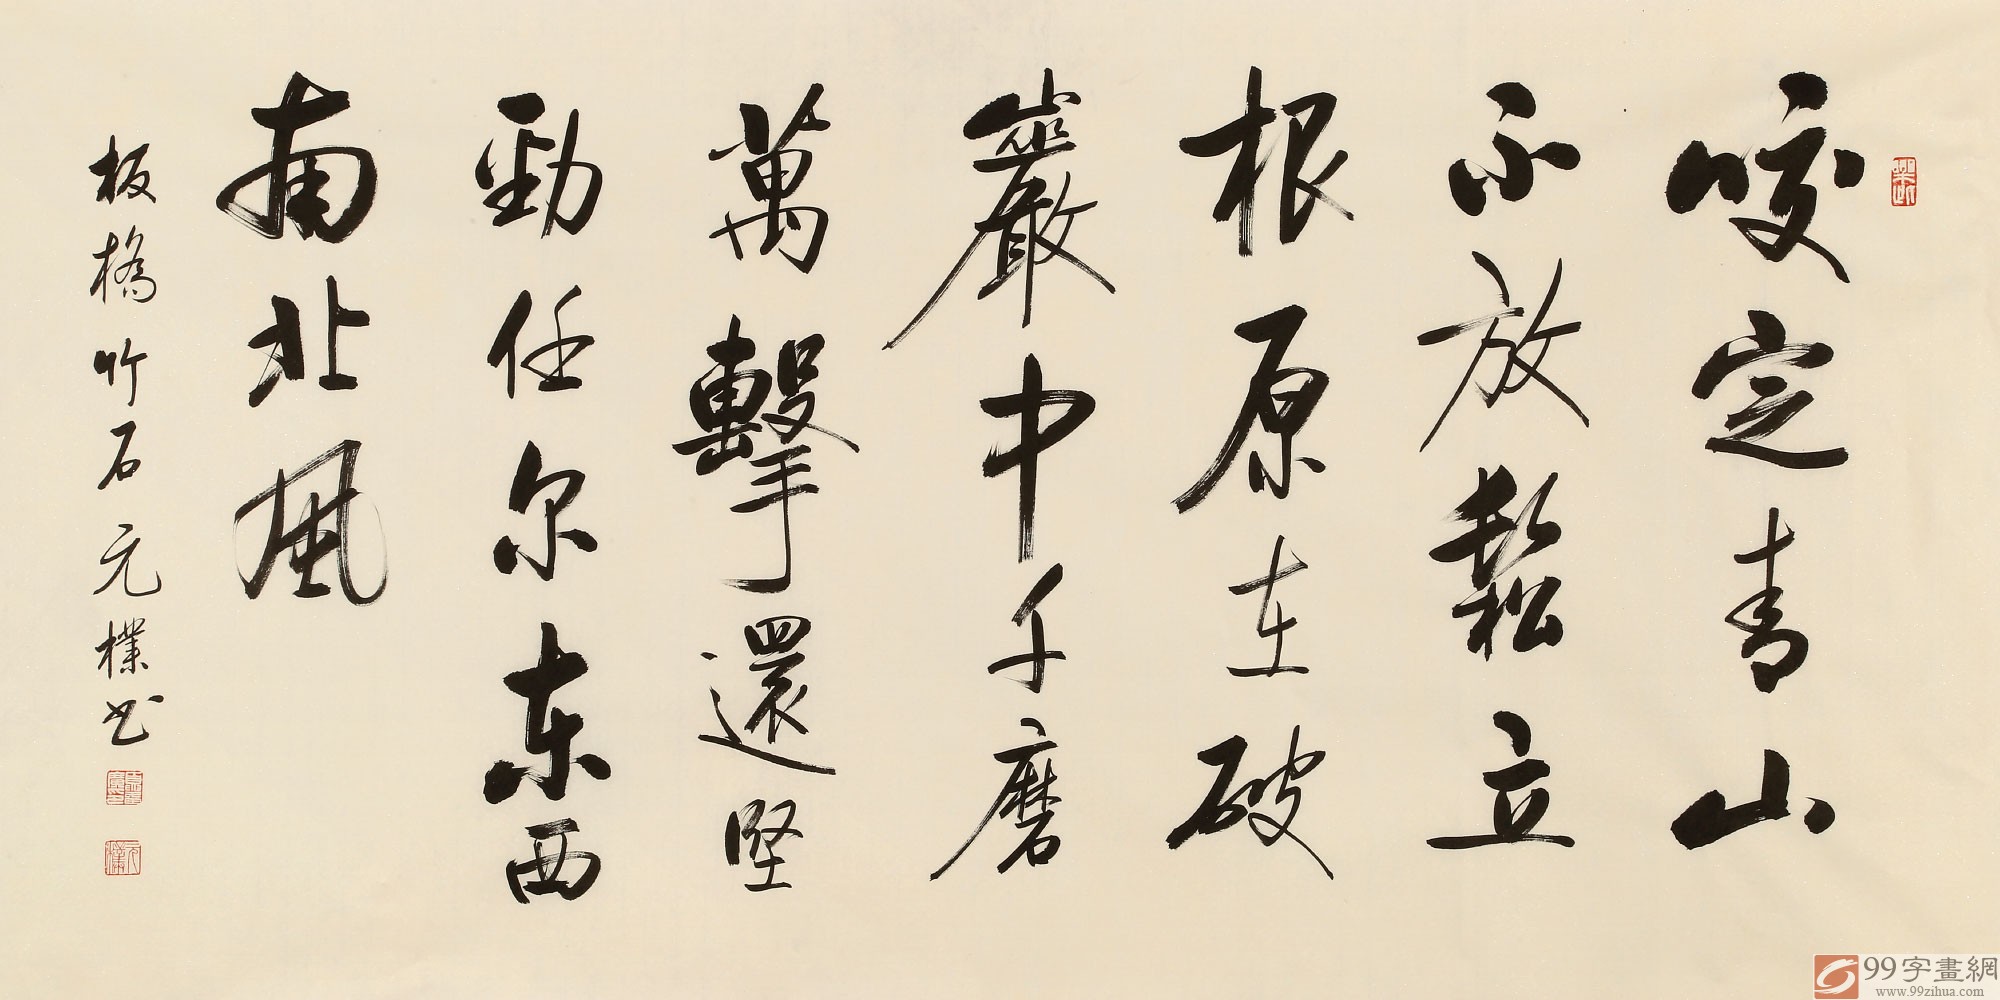 咬定青山
不放鬆立
根原在破
巖中千磨
萬擊還堅
勁任尔东西
南北风
板橋竹石元樸书
99字畫網
www.99zihua.com